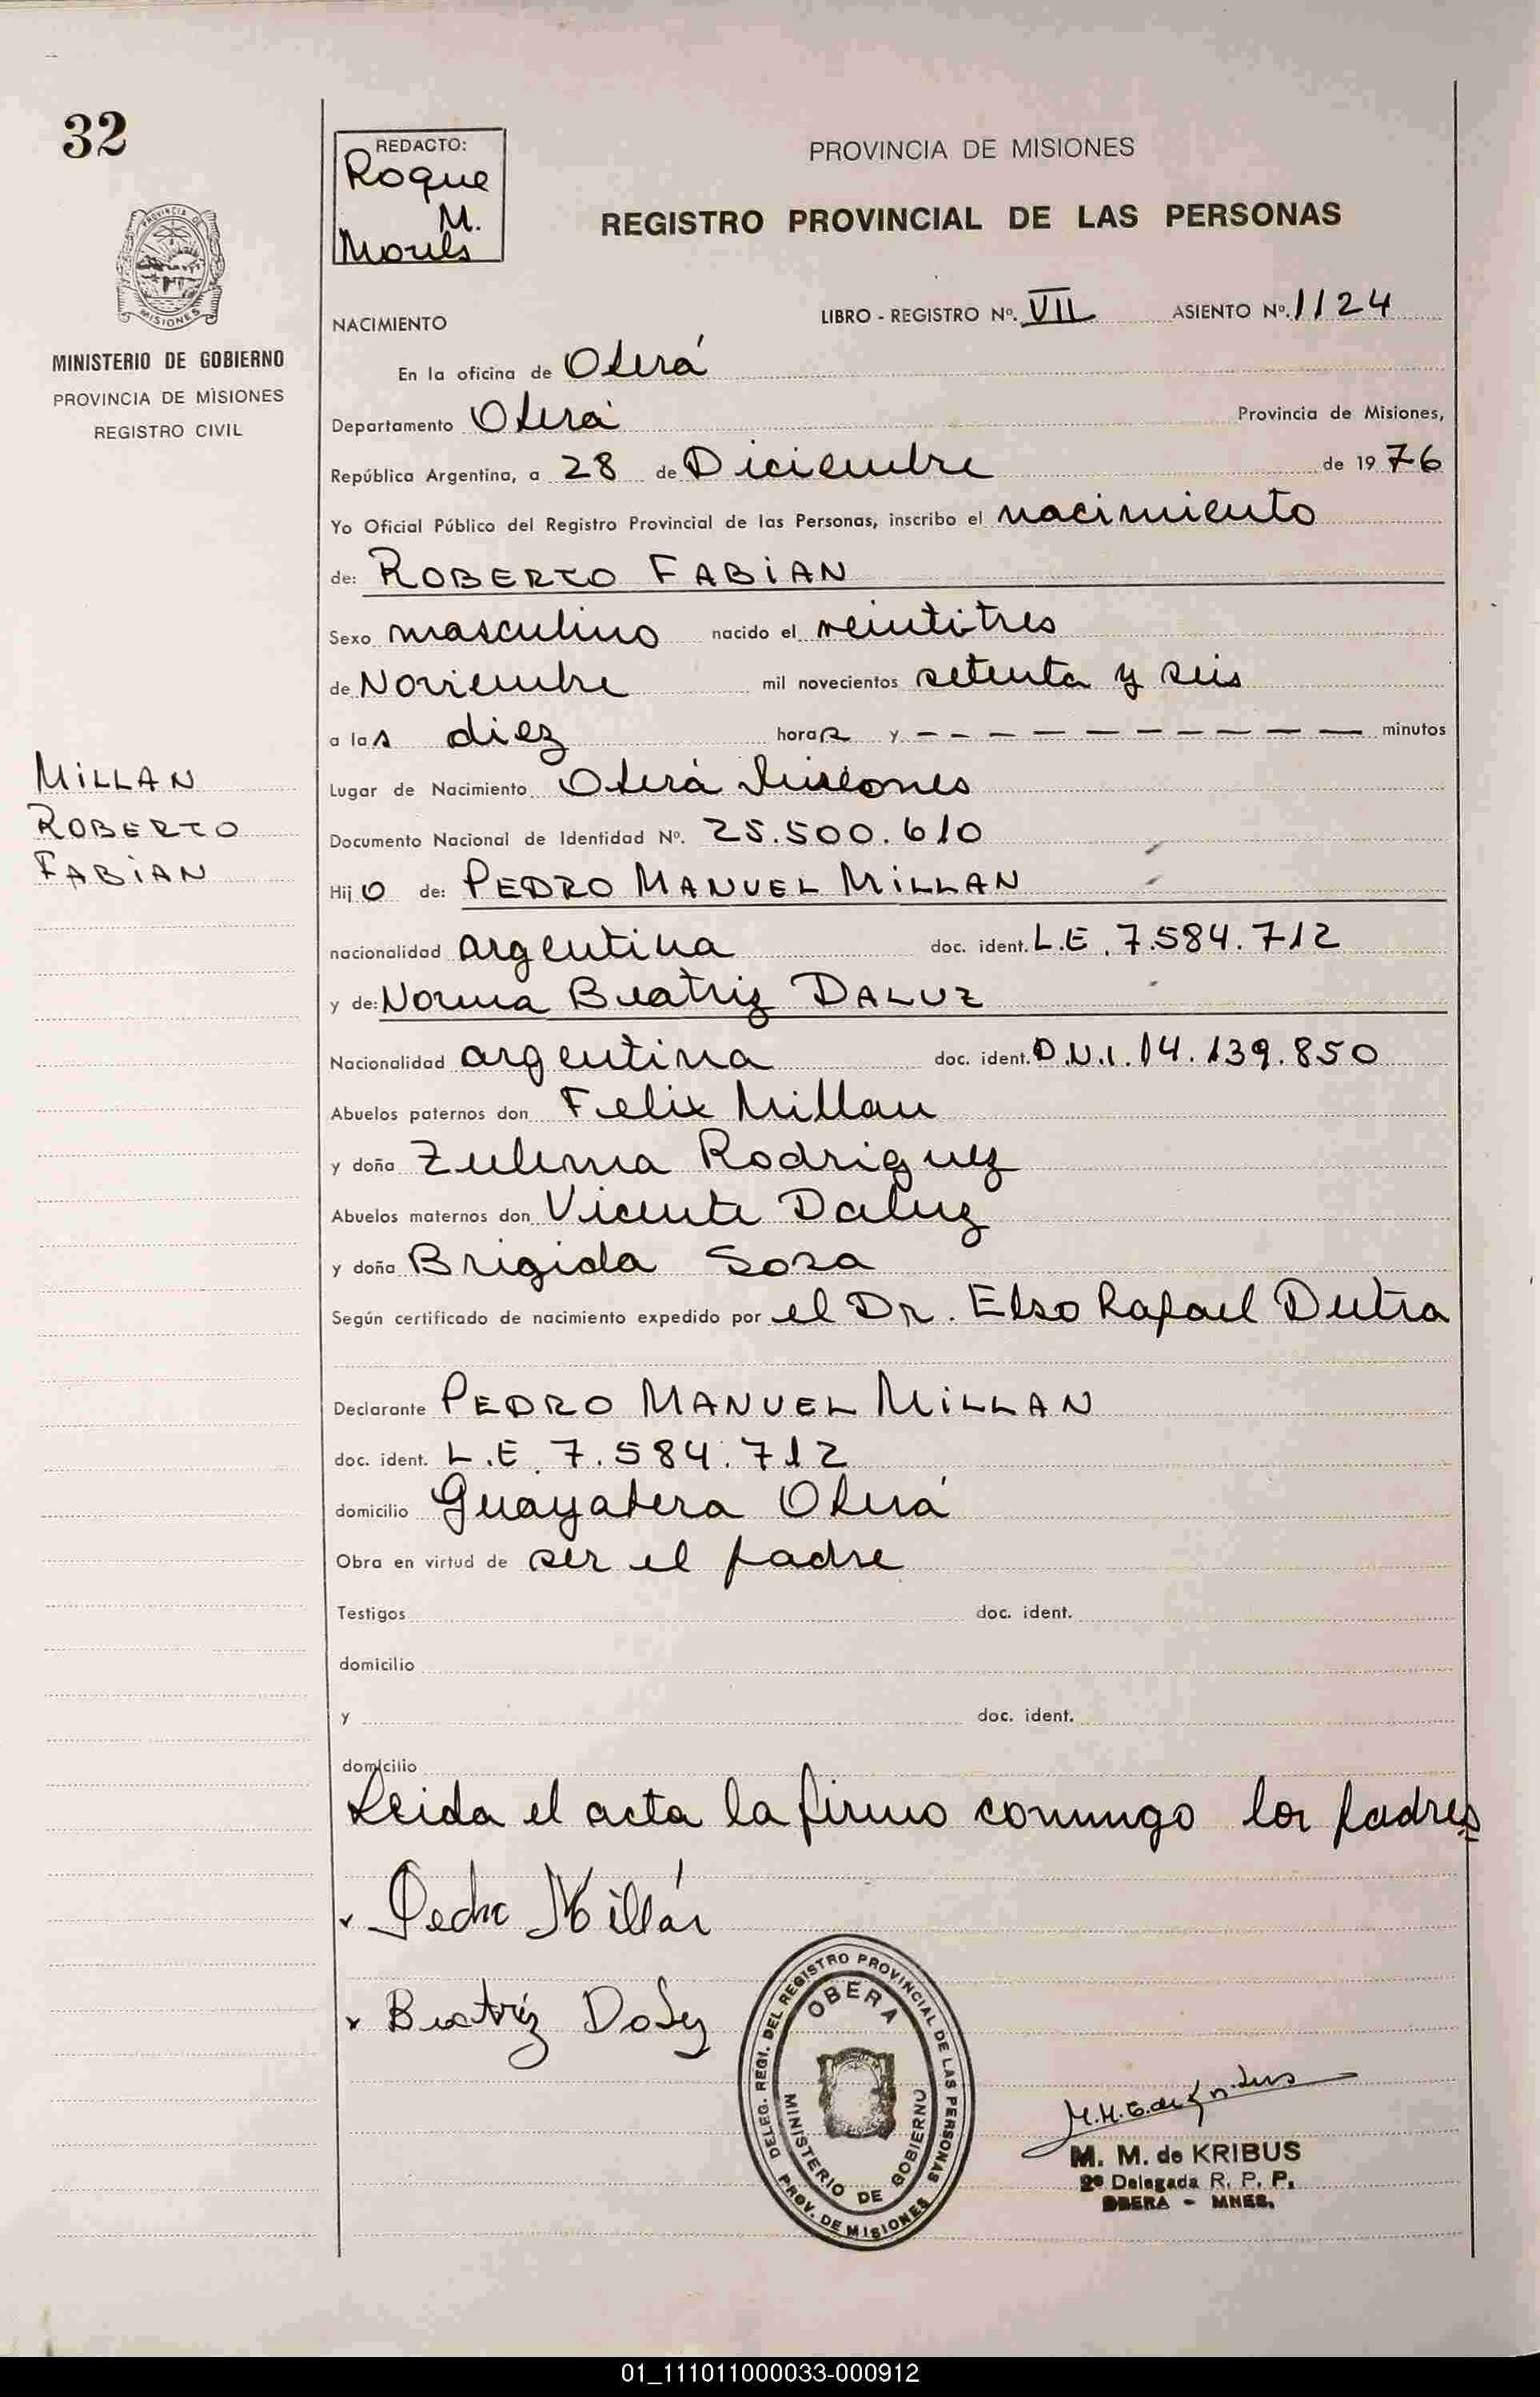 32
REDACTO:
Roque
M.
PROVINCIA DE MISIONES
REGISTRO PROVINCIAL DE LAS PERSONAS
PROVINCIA DE
MISIONES
MINISTERIO DE GOBIERNO
PROVINCIA DE MISIONES
REGISTRO CIVIL
NACIMIENTO LIBRO - REGISTRO Nº. VII ASIENTO Nº. 1124
En la oficina de Oberá
Departamento Oberá Provincia de Misiones,
República Argentina, a 28 de Diciembre de 19 76
Yo Oficial Público del Registro Provincial de las Personas, inscribo el nacimiento
de: ROBERTO FABIAN
Sexo masculino nacido el veintitres
de Noviembre mil novecientos setenta y seis
a las diez horas y — — — — — — — — — — minutos
Lugar de Nacimiento Oberá Misiones
Documento Nacional de Identidad Nº. 25.500.610
MILLAN
ROBERTO
FABIAN
Hijo de: PEDRO MANUEL MILLAN
nacionalidad argentina doc. ident. L.E. 7.584.712
y de: Norma Beatriz DALUZ
Nacionalidad argentina doc. ident. D.N.I. 14.139.850
Abuelos paternos don Felix Millan
y doña Zulema Rodriguez
Abuelos maternos don Vicente Daluz
y doña Brigida Sosa
Según certificado de nacimiento expedido por el Dr. Elso Rafael Dutra
Declarante PEDRO MANUEL MILLAN
doc. ident. L.E. 7.584.712
domicilio Guayabera Oberá
Obra en virtud de ser el padre
Testigos doc. ident.
domicilio
y doc. ident.
domicilio
Leida el acta la firmo conmigo los padres
Pedro Millán
Beatriz
DELEG. REGI. DEL REGISTRO PROVINCIAL DE LAS PERSONAS
OBERA
MINISTERIO DE GOBIERNO
PROV. DE MISIONES
M. M. de KRIBUS
2º Delegada R. P. P.
OBERA - MNES.
01_111011000033-000912